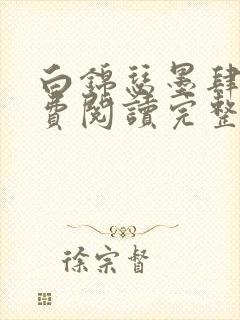 白錦瑟墨肆
費閱讀完整
徐宗督